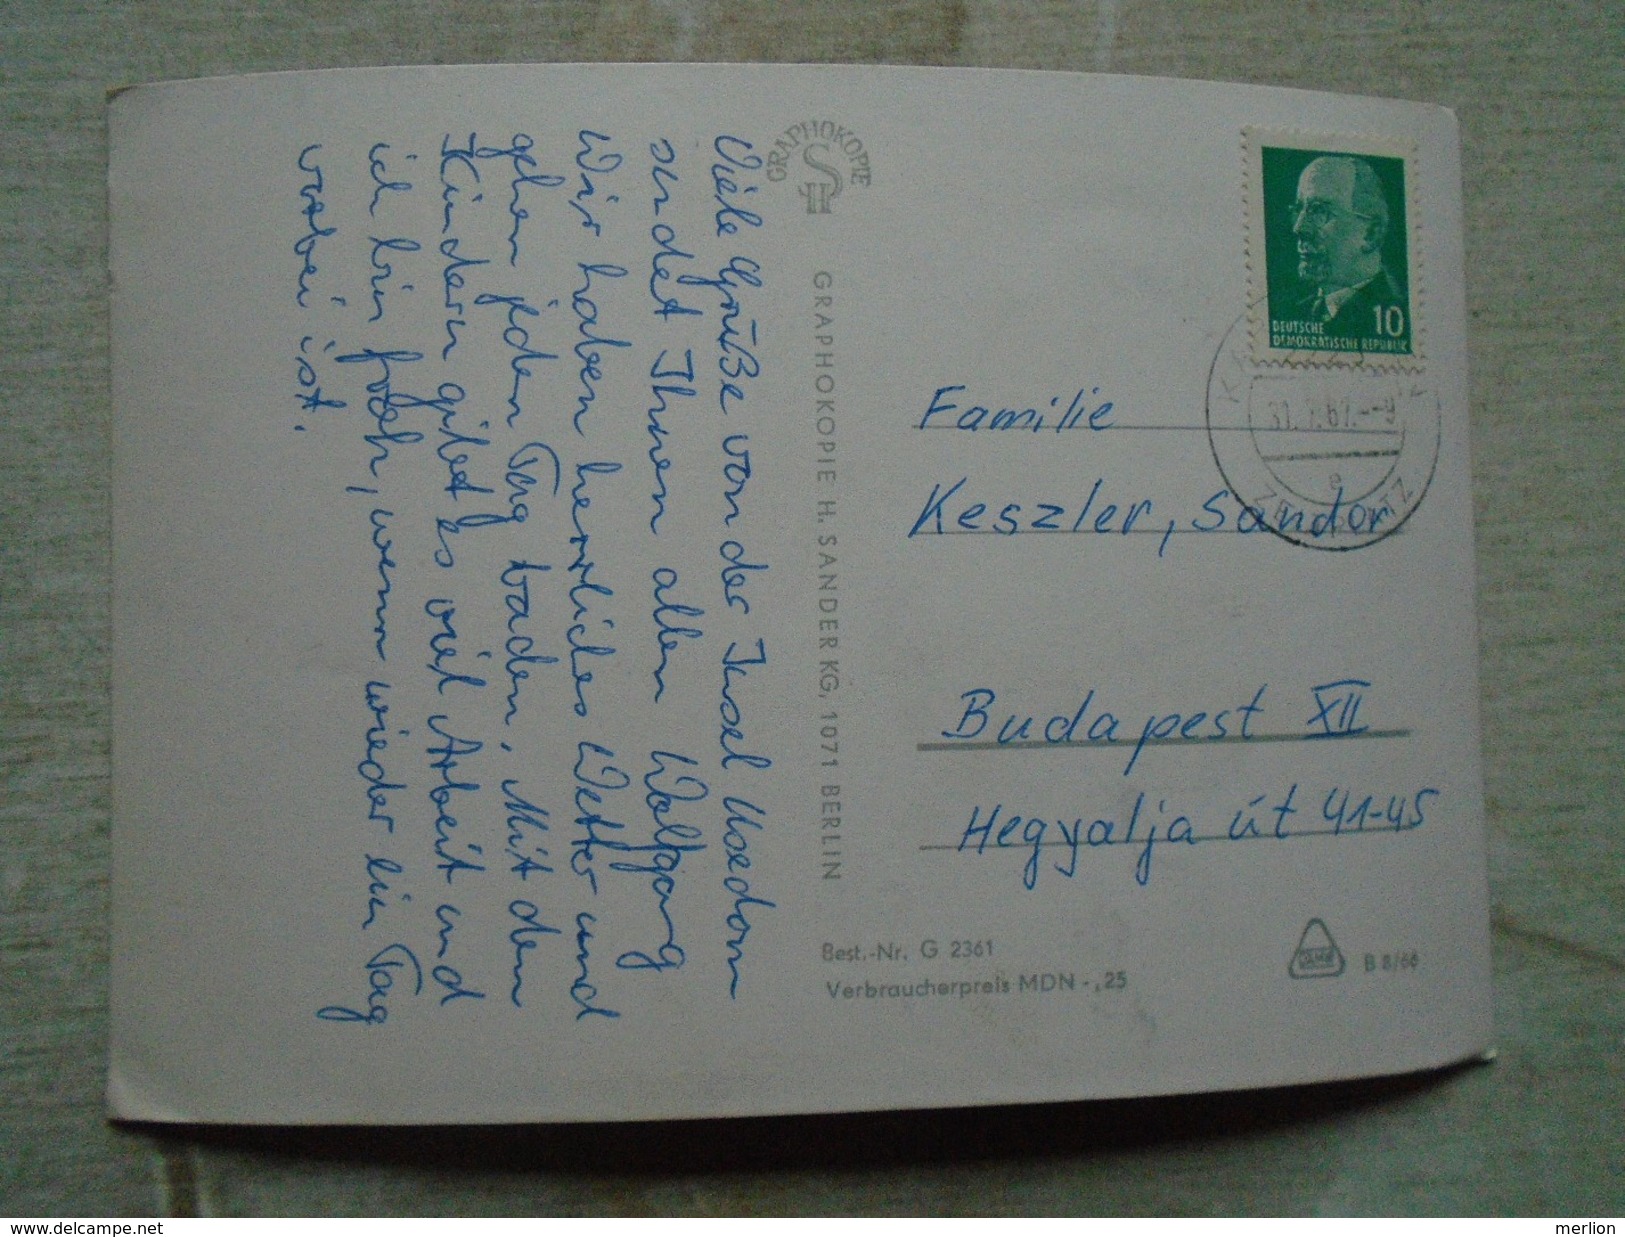 Viele Grüße von der Insel Usedom
sendet Ihnen allen Wolfgang
Wir haben herrliches Wetter und
gehen jeden Tag baden. Mit den
Kindern gibt es viel Arbeit und
ich bin froh, wenn wieder ein Tag
vorbei ist.
GRAPHOKOPIE
GRAPHOKOPIE H. SANDER KG, 1071 BERLIN
10
DEUTSCHE
DEMOKRATISCHE REPUBLIK
ZEMPINITZ
Familie
Keszler, Sandor
Budapest XII
Hegyalja út 41-45
Best.-Nr. G 2361
Verbraucherpreis MDN -,25
B 8/66
www.delcampe.net
merlion